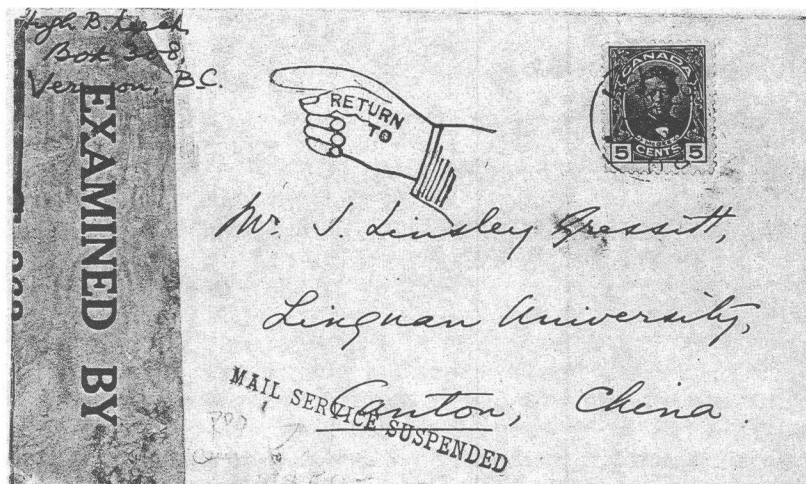 Hugh B. Leech,
Box 308,
Vernon, B.C.
EXAMINED BY
RETURN
TO
CANADA
5 CENTS 5
Mr. J. Linsley Gressitt,
Lingnan University,
Canton, China.
MAIL SERVICE SUSPENDED